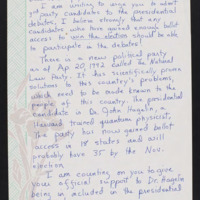 I am writing to urge you to admit
3rd party candidates to the presidential
debates. I believe strongly that any
candidates who have gained enough ballot
access to win the election should be able
to participate in the debates!
There is a new political party
as of Apr 20, 1992 called The Natural
Law Party. It has scientifically proven
solutions to this country's problems,
which need to be made known to the
people of this country. The presidential
candidate is Dr. John Hagelin, a
Harvard trained quantum physicist.
The party has now gained ballot
access in 18 states and will
probably have 35 by the Nov.
election.
I am counting on you to give
your official support to Dr. Hagelin
being in included in the presidential